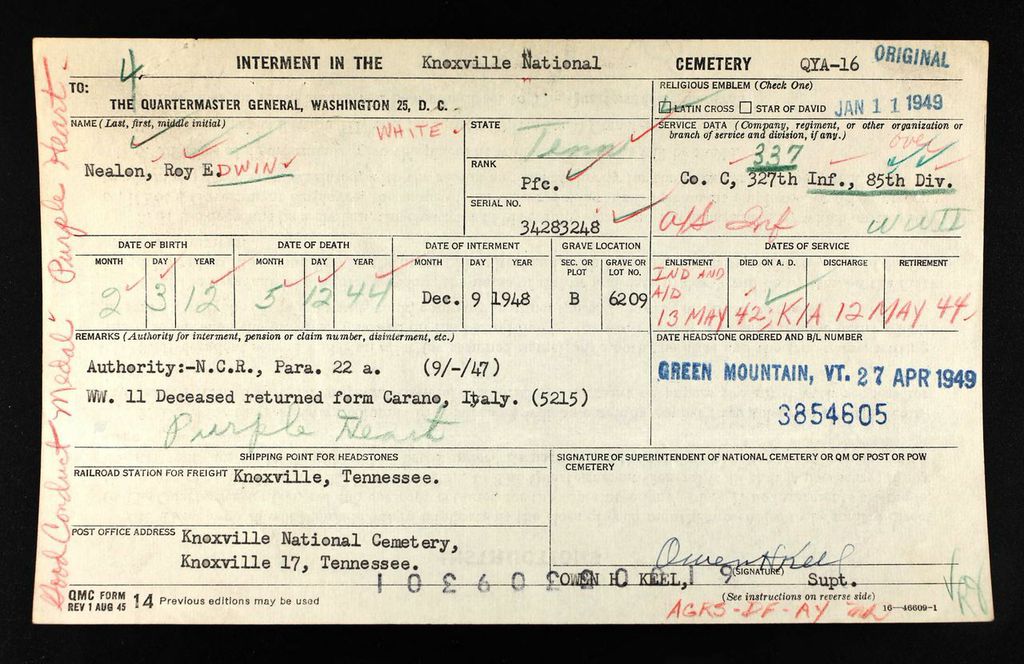 4
INTERMENT IN THE Knoxville National CEMETERY QYA-16 ORIGINAL
TO:
THE QUARTERMASTER GENERAL, WASHINGTON 25, D. C.
RELIGIOUS EMBLEM (Check One)
LATIN CROSS STAR OF DAVID JAN 11 1949
NAME (Last, first, middle initial) WHITE
Nealon, Roy E.DWIN
STATE
Tenn
RANK
Pfc.
SERIAL NO.
34283248
SERVICE DATA (Company, regiment, or other organization or
branch of service and division, if any.) over
337
Co. C, 327th Inf., 85th Div.
A/S Inf WWII
DATE OF BIRTH DATE OF DEATH DATE OF INTERMENT GRAVE LOCATION DATES OF SERVICE
MONTH DAY YEAR MONTH DAY YEAR MONTH DAY YEAR SEC. OR PLOT GRAVE OR LOT NO. ENLISTMENT DIED ON A. D. DISCHARGE RETIREMENT
2 3 12 5 12 44 Dec. 9 1948 B 6209
IND AND
A/D
13 MAY 42; KIA 12 MAY 44
REMARKS (Authority for interment, pension or claim number, disinterment, etc.)
Authority:-N.C.R., Para. 22 a. (9/-/47)
WW. 11 Deceased returned form Carano, Italy. (5215)
Purple Heart
DATE HEADSTONE ORDERED AND B/L NUMBER
GREEN MOUNTAIN, VT. 27 APR 1949
3854605
SHIPPING POINT FOR HEADSTONES
RAILROAD STATION FOR FREIGHT Knoxville, Tennessee.
POST OFFICE ADDRESS Knoxville National Cemetery,
Knoxville 17, Tennessee.
SIGNATURE OF SUPERINTENDENT OF NATIONAL CEMETERY OR QM OF POST OR POW
CEMETERY
Owen H Keel
OWEN H. KEEL, (SIGNATURE) Supt.
(See instructions on reverse side)
AGRS-DF-AY
QMC FORM
REV 1 AUG 45 14 Previous editions may be used
16-46609-1
Good Conduct Medal Purple Heart